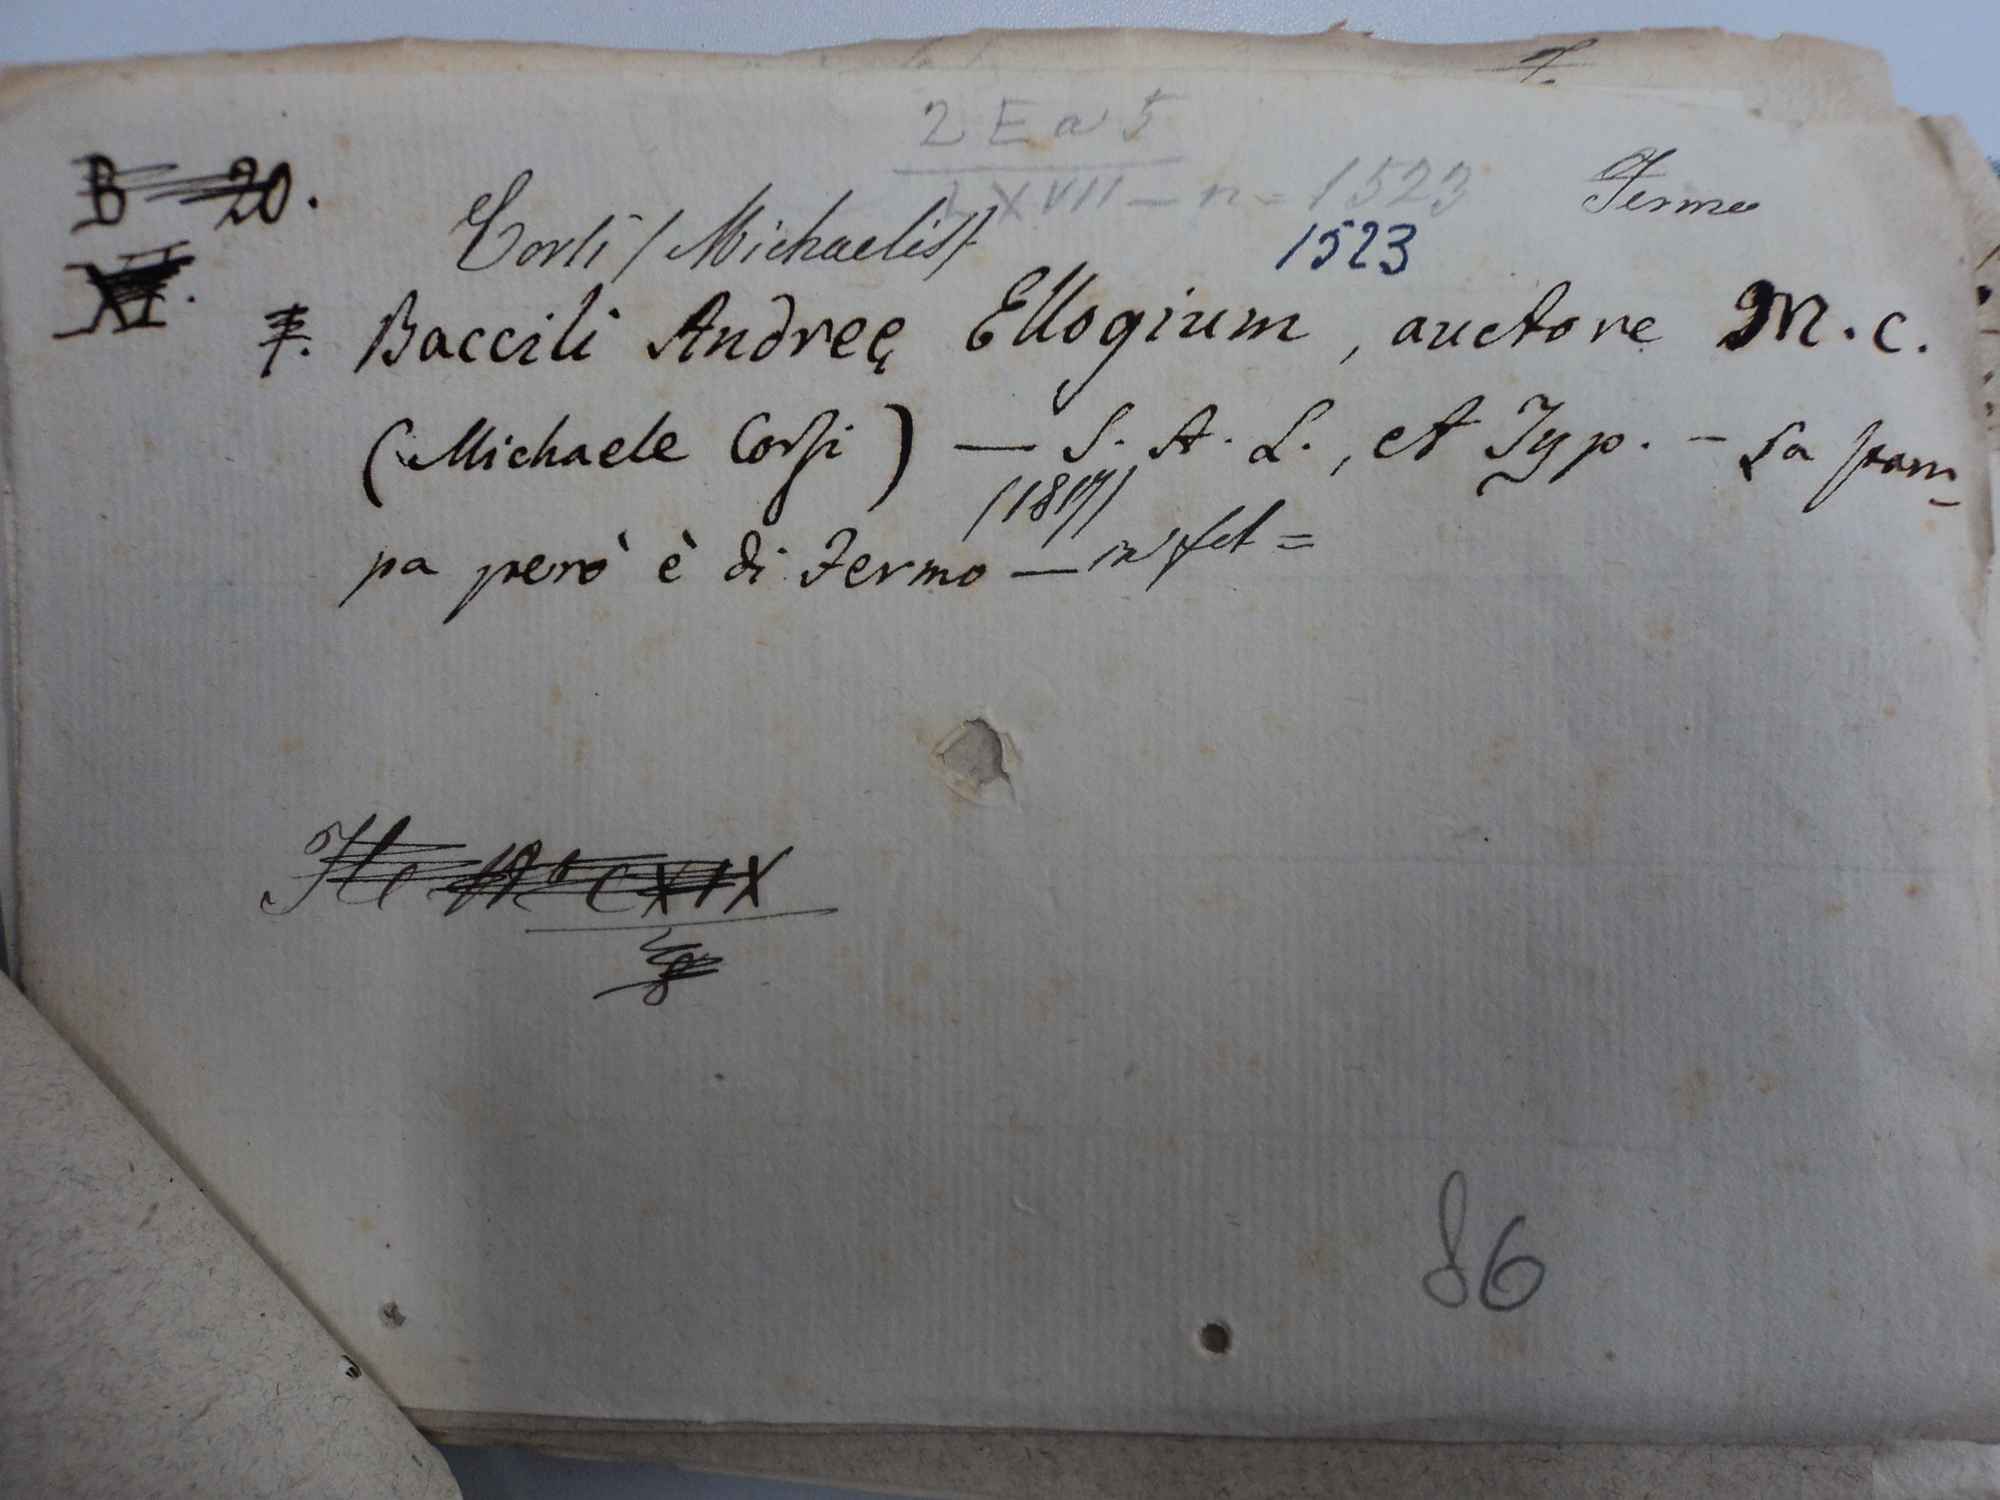 2 E a 5
B 20.
LXVII - n = 1523
Fermo
Corsi (Michaelis)
1523
XI.
F. Baccili Andreę Ellogium, auctore M. C.
(Michaele Corsi) — S. A. L., et Typ. - La stam-
(1817)
pa però è di Fermo — in fol =
CXIX
8
86